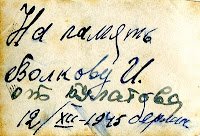 На память
Волкову И.
от Булатова
12/XII-1945 Берлин